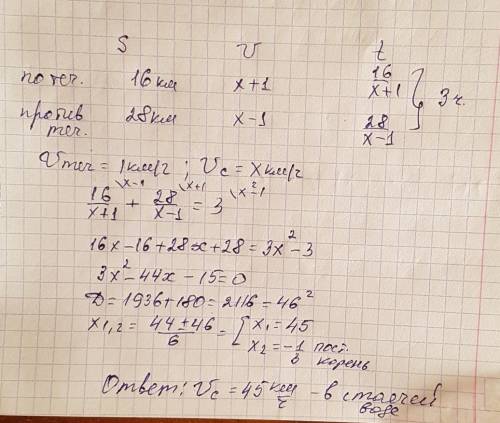 S V t
по теч. 16 км x+1 16/(x+1)
против теч. 28 км x-1 28/(x-1) } 3 ч.
Vтеч = 1 км/ч ; Vс = x км/ч
16/(x+1) \x-1 + 28/(x-1) \x+1 = 3 \x²-1
16x-16+28x+28=3x²-3
3x²-44x-15=0
D=1936+180=2116=46²
x1,2 = (44±46)/6 = [ x1=45
x2=-1/3 пост. корень
Ответ: Vс = 45 км/ч - в стоячей воде